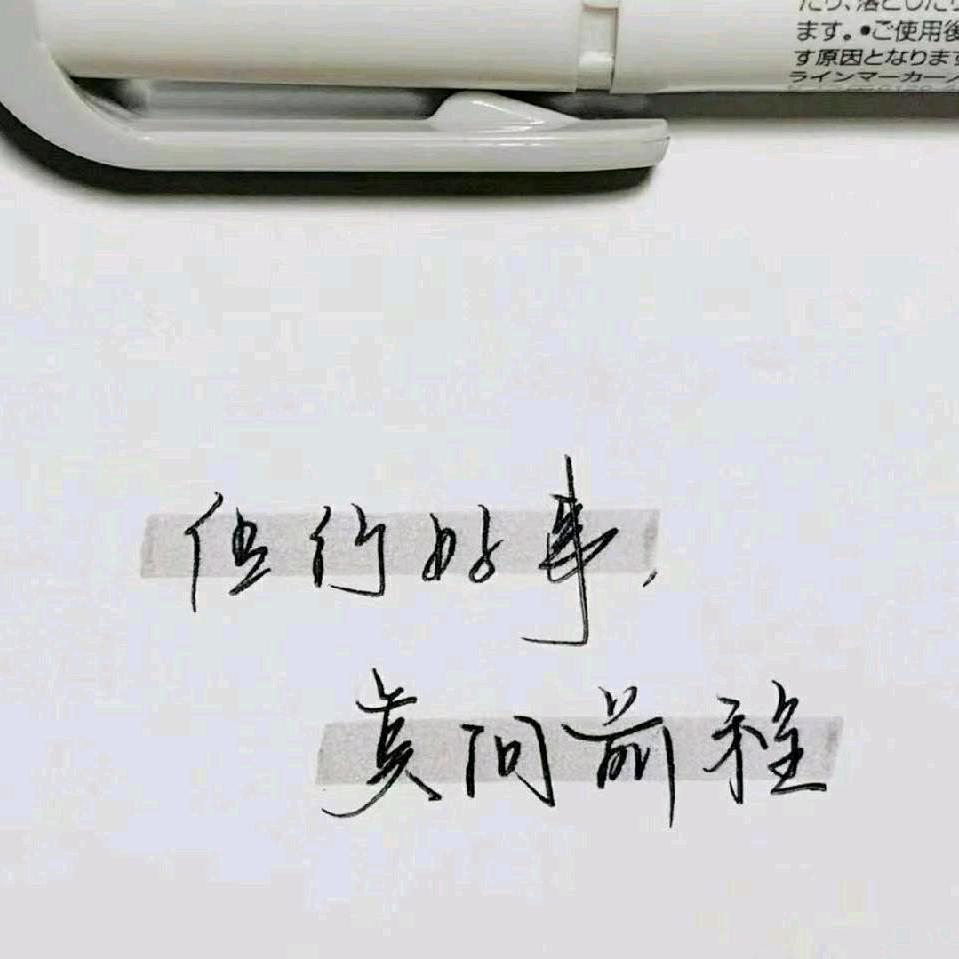 たり、落としたり
ます。●ご使用後
す原因となります
ラインマーカー
但行好事，
莫问前程